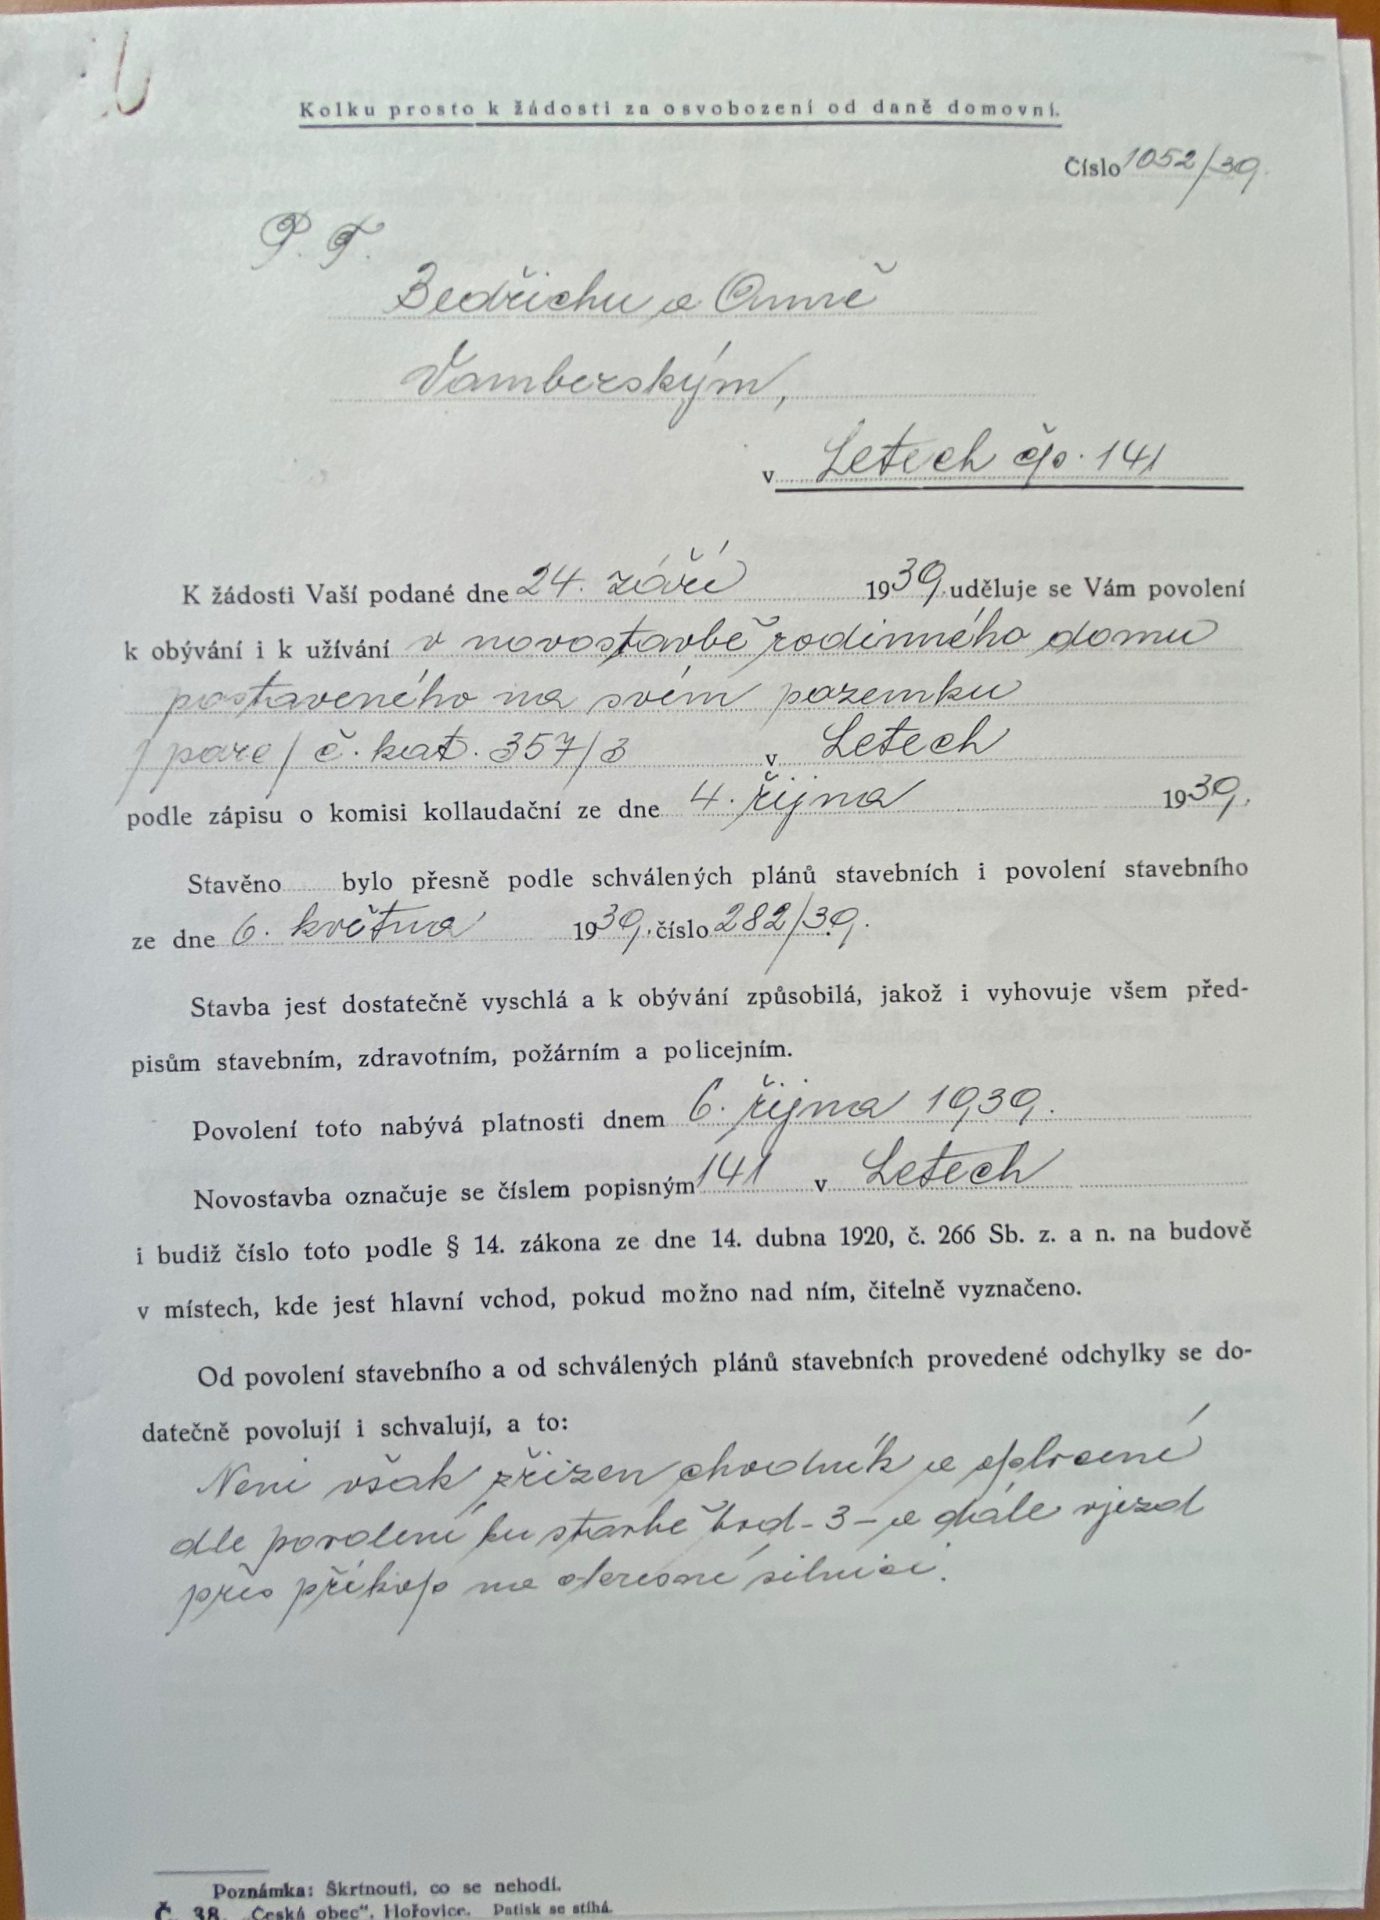 Kolku prosto k žádosti za osvobození od daně domovní.
Číslo 1052/39.
P. T.
Bedřichu a Anně
Vamberským,
v Letech čp. 141
K žádosti Vaší podané dne 24. září 1939. uděluje se Vám povolení
k obývání i k užívání v novostavbě rodinného domu
postaveného na svém pozemku
/parc/ č. kat. 357/3 v Letech
podle zápisu o komisi kollaudační ze dne 4. října 1939.
Stavěno bylo přesně podle schválených plánů stavebních i povolení stavebního
ze dne 6. května 1939. číslo 282/39.
Stavba jest dostatečně vyschlá a k obývání způsobilá, jakož i vyhovuje všem před-
pisům stavebním, zdravotním, požárním a policejním.
Povolení toto nabývá platnosti dnem 6. října 1939.
Novostavba označuje se číslem popisným 141 v Letech
i budiž číslo toto podle § 14. zákona ze dne 14. dubna 1920, č. 266 Sb. z. a n. na budově
v místech, kde jest hlavní vchod, pokud možno nad ním, čitelně vyznačeno.
Od povolení stavebního a od schválených plánů stavebních provedené odchylky se do-
datečně povolují i schvalují, a to:
Není však zřízen chodník a oplocení
dle povolení ku stavbě bod - 3 - a dále vjezd
přes příkop na okresní silnici.
Poznámka: Škrtnouti, co se nehodí.
Č. 38. „Česká obec", Hořovice. Patisk se stíhá.